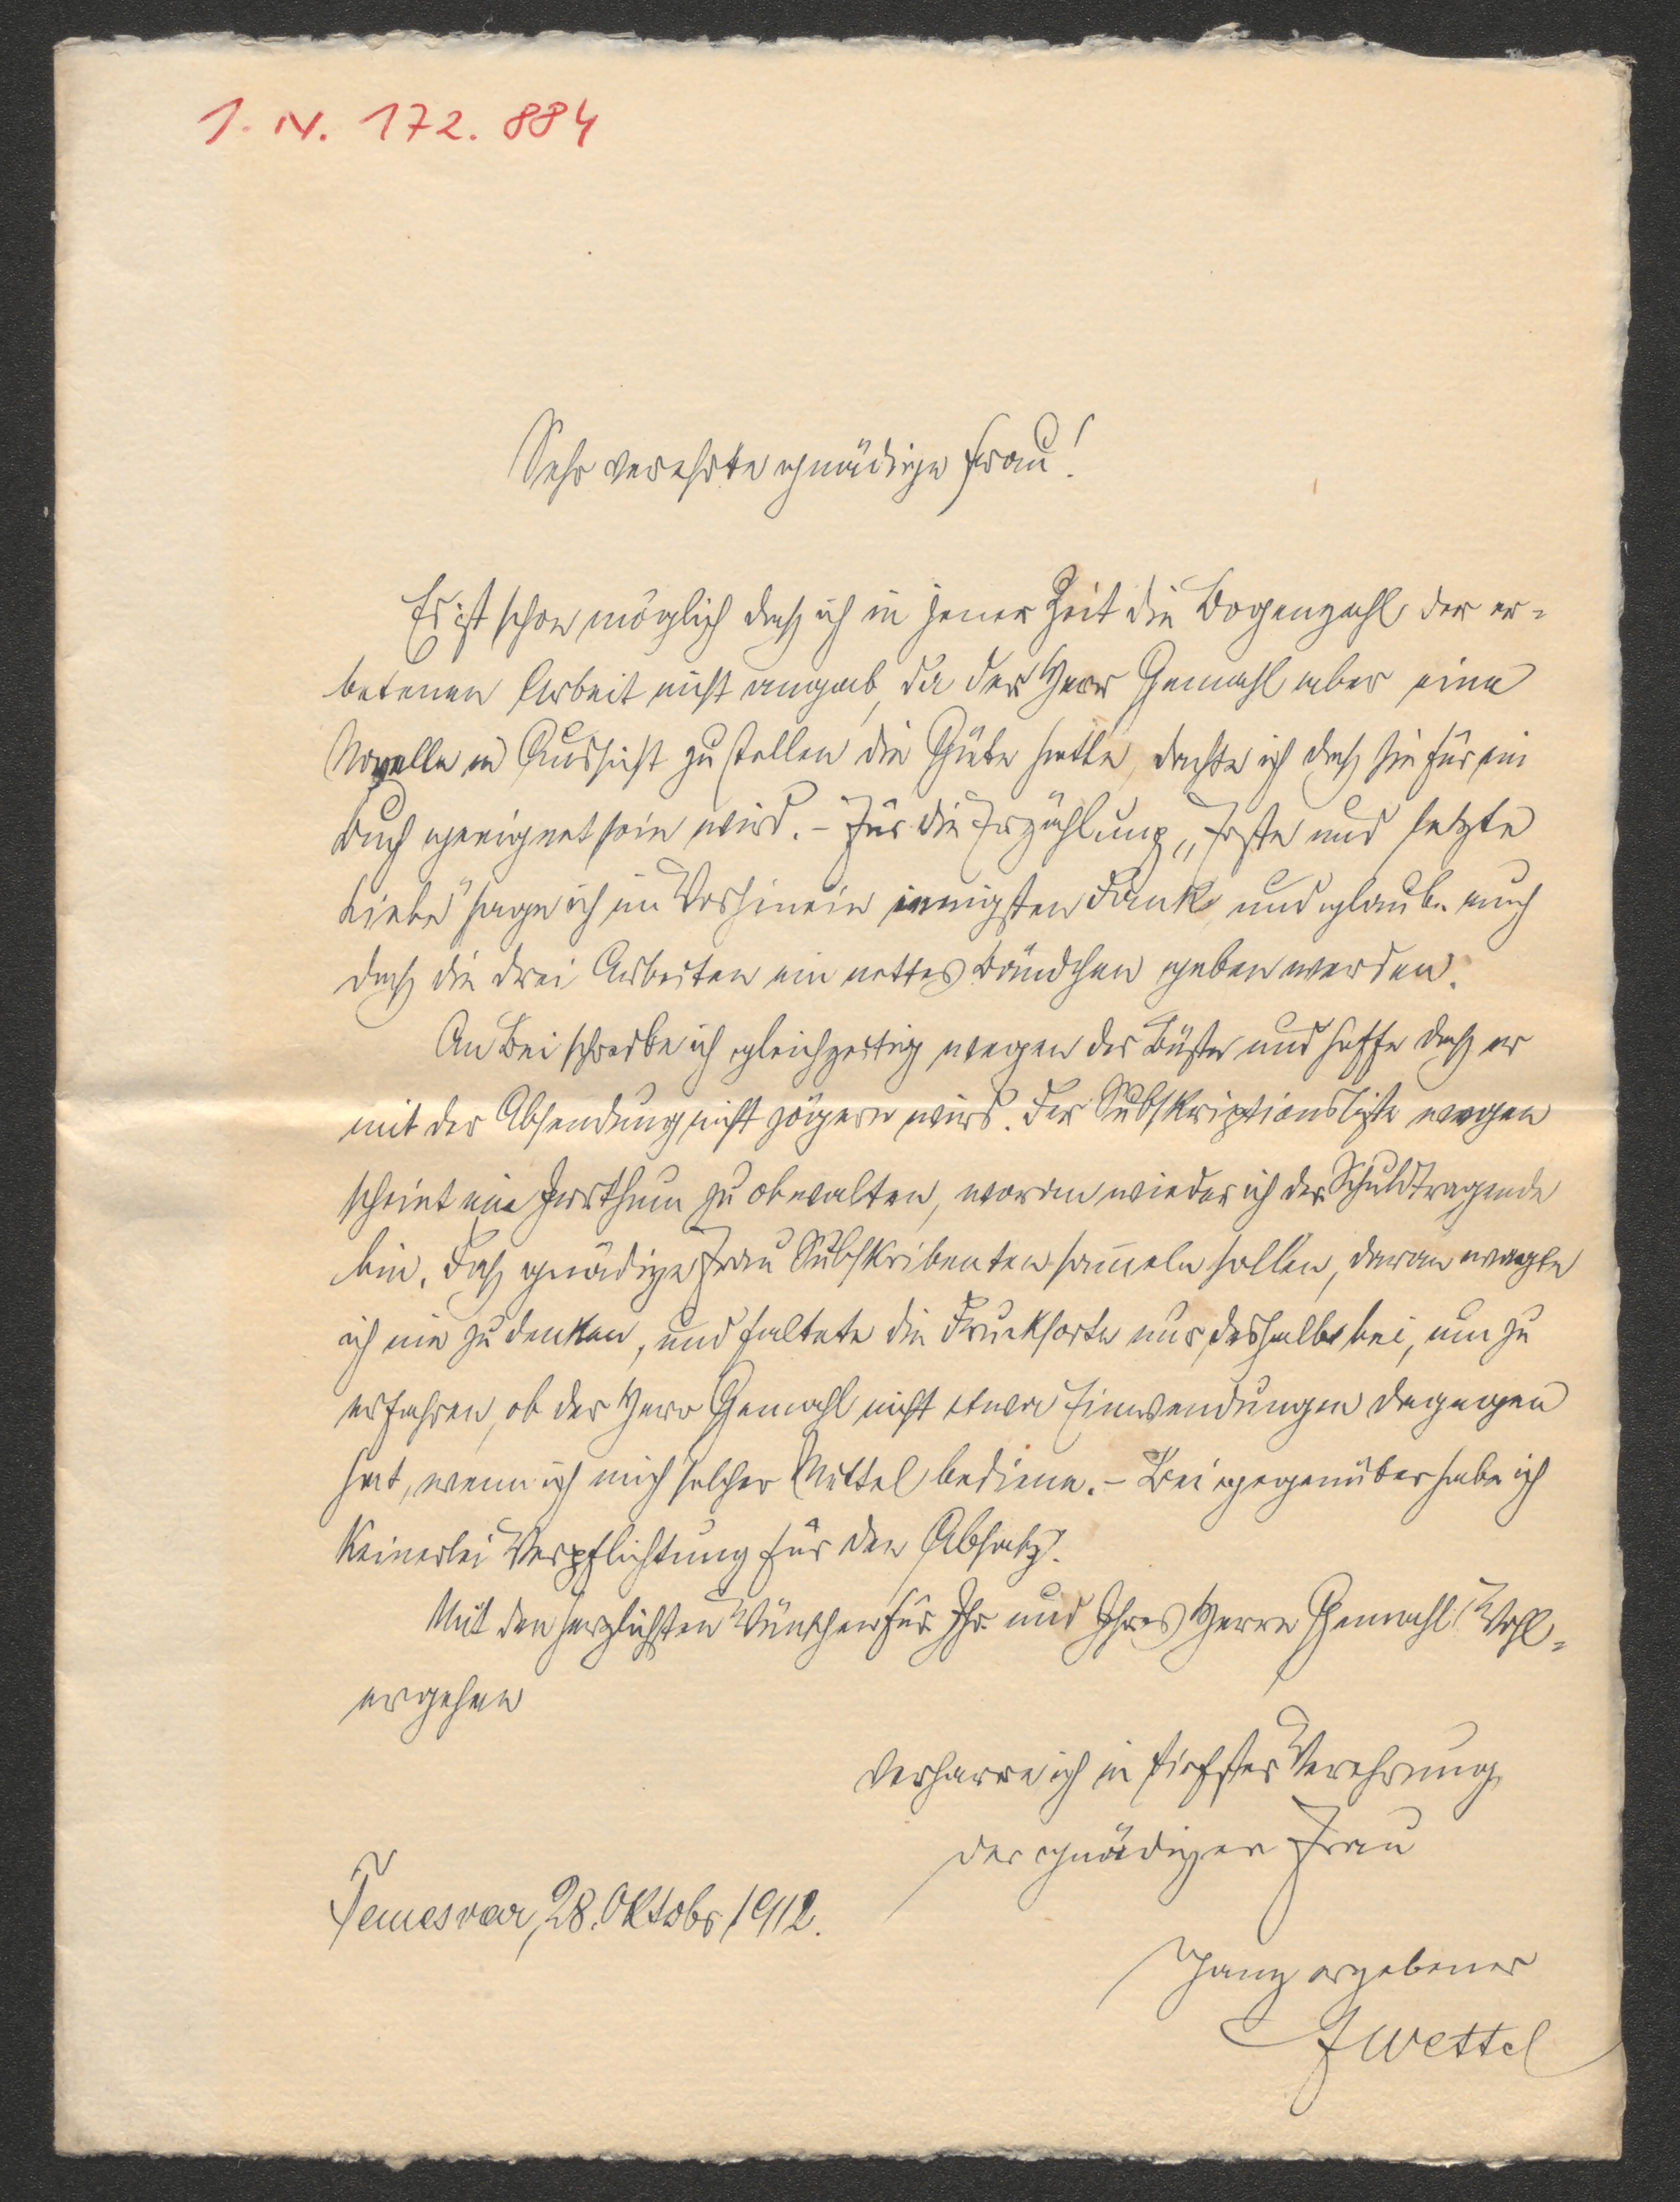 I. N. 172.884
Sehr verehrte gnädige Frau!
Es ist schon möglich dasz ich in jener Zeit die Bogenzahl der er=
betenen Arbeit nicht angab, da der Herr Gemahl aber eine
Novelle in Aussicht zu stellen die Güte hatte, dachte ich dasz sie für ein
Buch geeignet sein wird. – Für die Erzählung „Erste und letzte
Liebe" sage ich im Vorhinein innigsten Dank und glaube auch
dasz die drei Arbeiten ein nettes Bändchen geben werden.
An Bei schreibe ich gleichzeitig wegen der Büste und hoffe dasz er
mit der Absendung nicht zögern wird. Der Subskriptionsliste wegen
scheint ein Irrthum zu obwalten, woran wieder ich der Schuldtragende
bin. Dasz gnädige Frau Subskribenten sam̄eln sollen, daran wagte
ich nie zu denken, und faltete die Drucksorte nur deshalb bei, um zu
erfahren, ob der Herr Gemahl nicht etwa Einwendungen dagegen
hat, wenn ich mich solcher Mittel bediene. – Bei gegenüber habe ich
keinerlei Verpflichtung für den Absatz.
Mit den herzlichsten Wünschen für Ihr und Ihres Herrn Gemahls Wohl=
ergehen
verharre ich in tiefster Verehrung
der gnädigen Frau
Temesvar, 28. Oktobr 1912.
Ganz ergebener
FWettel